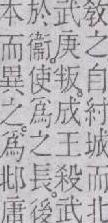 敎之自紂城而北
武庚叛成王殺武
於衞使爲之長後
本而異之爲邶庸